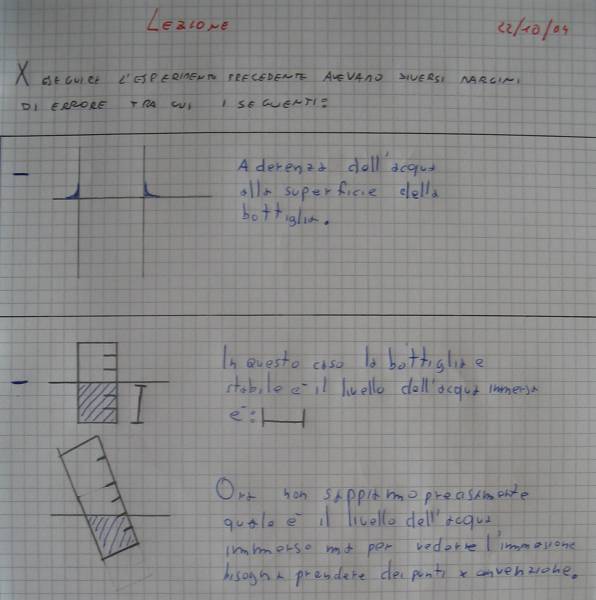 LEZIONE 22/10/04
X ESEGUIRE L'ESPERIMENTO PRECEDENTE AVEVAMO DIVERSI MARGINI
DI ERRORE TRA CUI I SEGUENTI:
- Aderenza dell'acqua
alla superficie della
bottiglia.
- In questo caso la bottiglia e
stabile e il livello dell'acqua immersa
e':
Ora non sappiamo precisamente
quale è il livello dell'acqua
immerso ma per vedere l'immersione
bisogna prendere dei punti x convenzione.